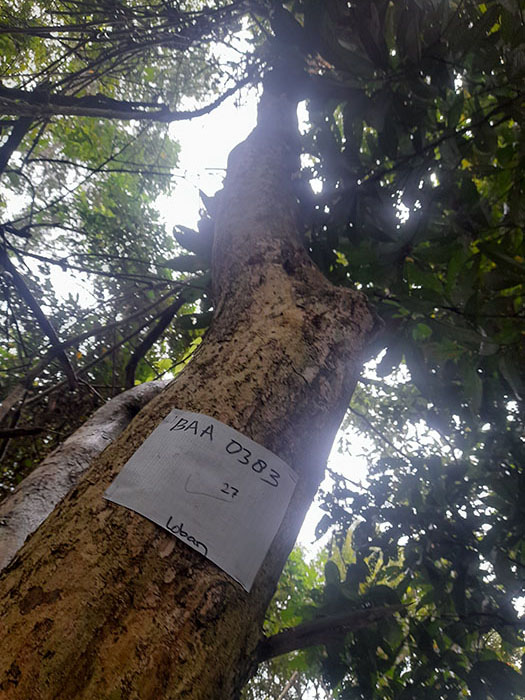 BAA 0383
27
Loban